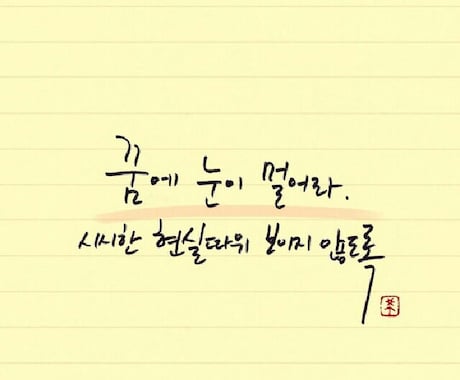 꿈에 눈이 멀어라.
시시한 현실따위 보이지 않도록